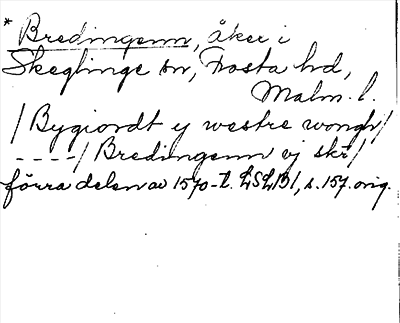 * Bredingenn, åker i
Skeglinge sn, Frosta hd,
Malm. l.
/Bygiordt ej westre wongh/
----/Bredingenn ej skr/
förra delen av 1570-t. LSLB1, s. 157. orig.